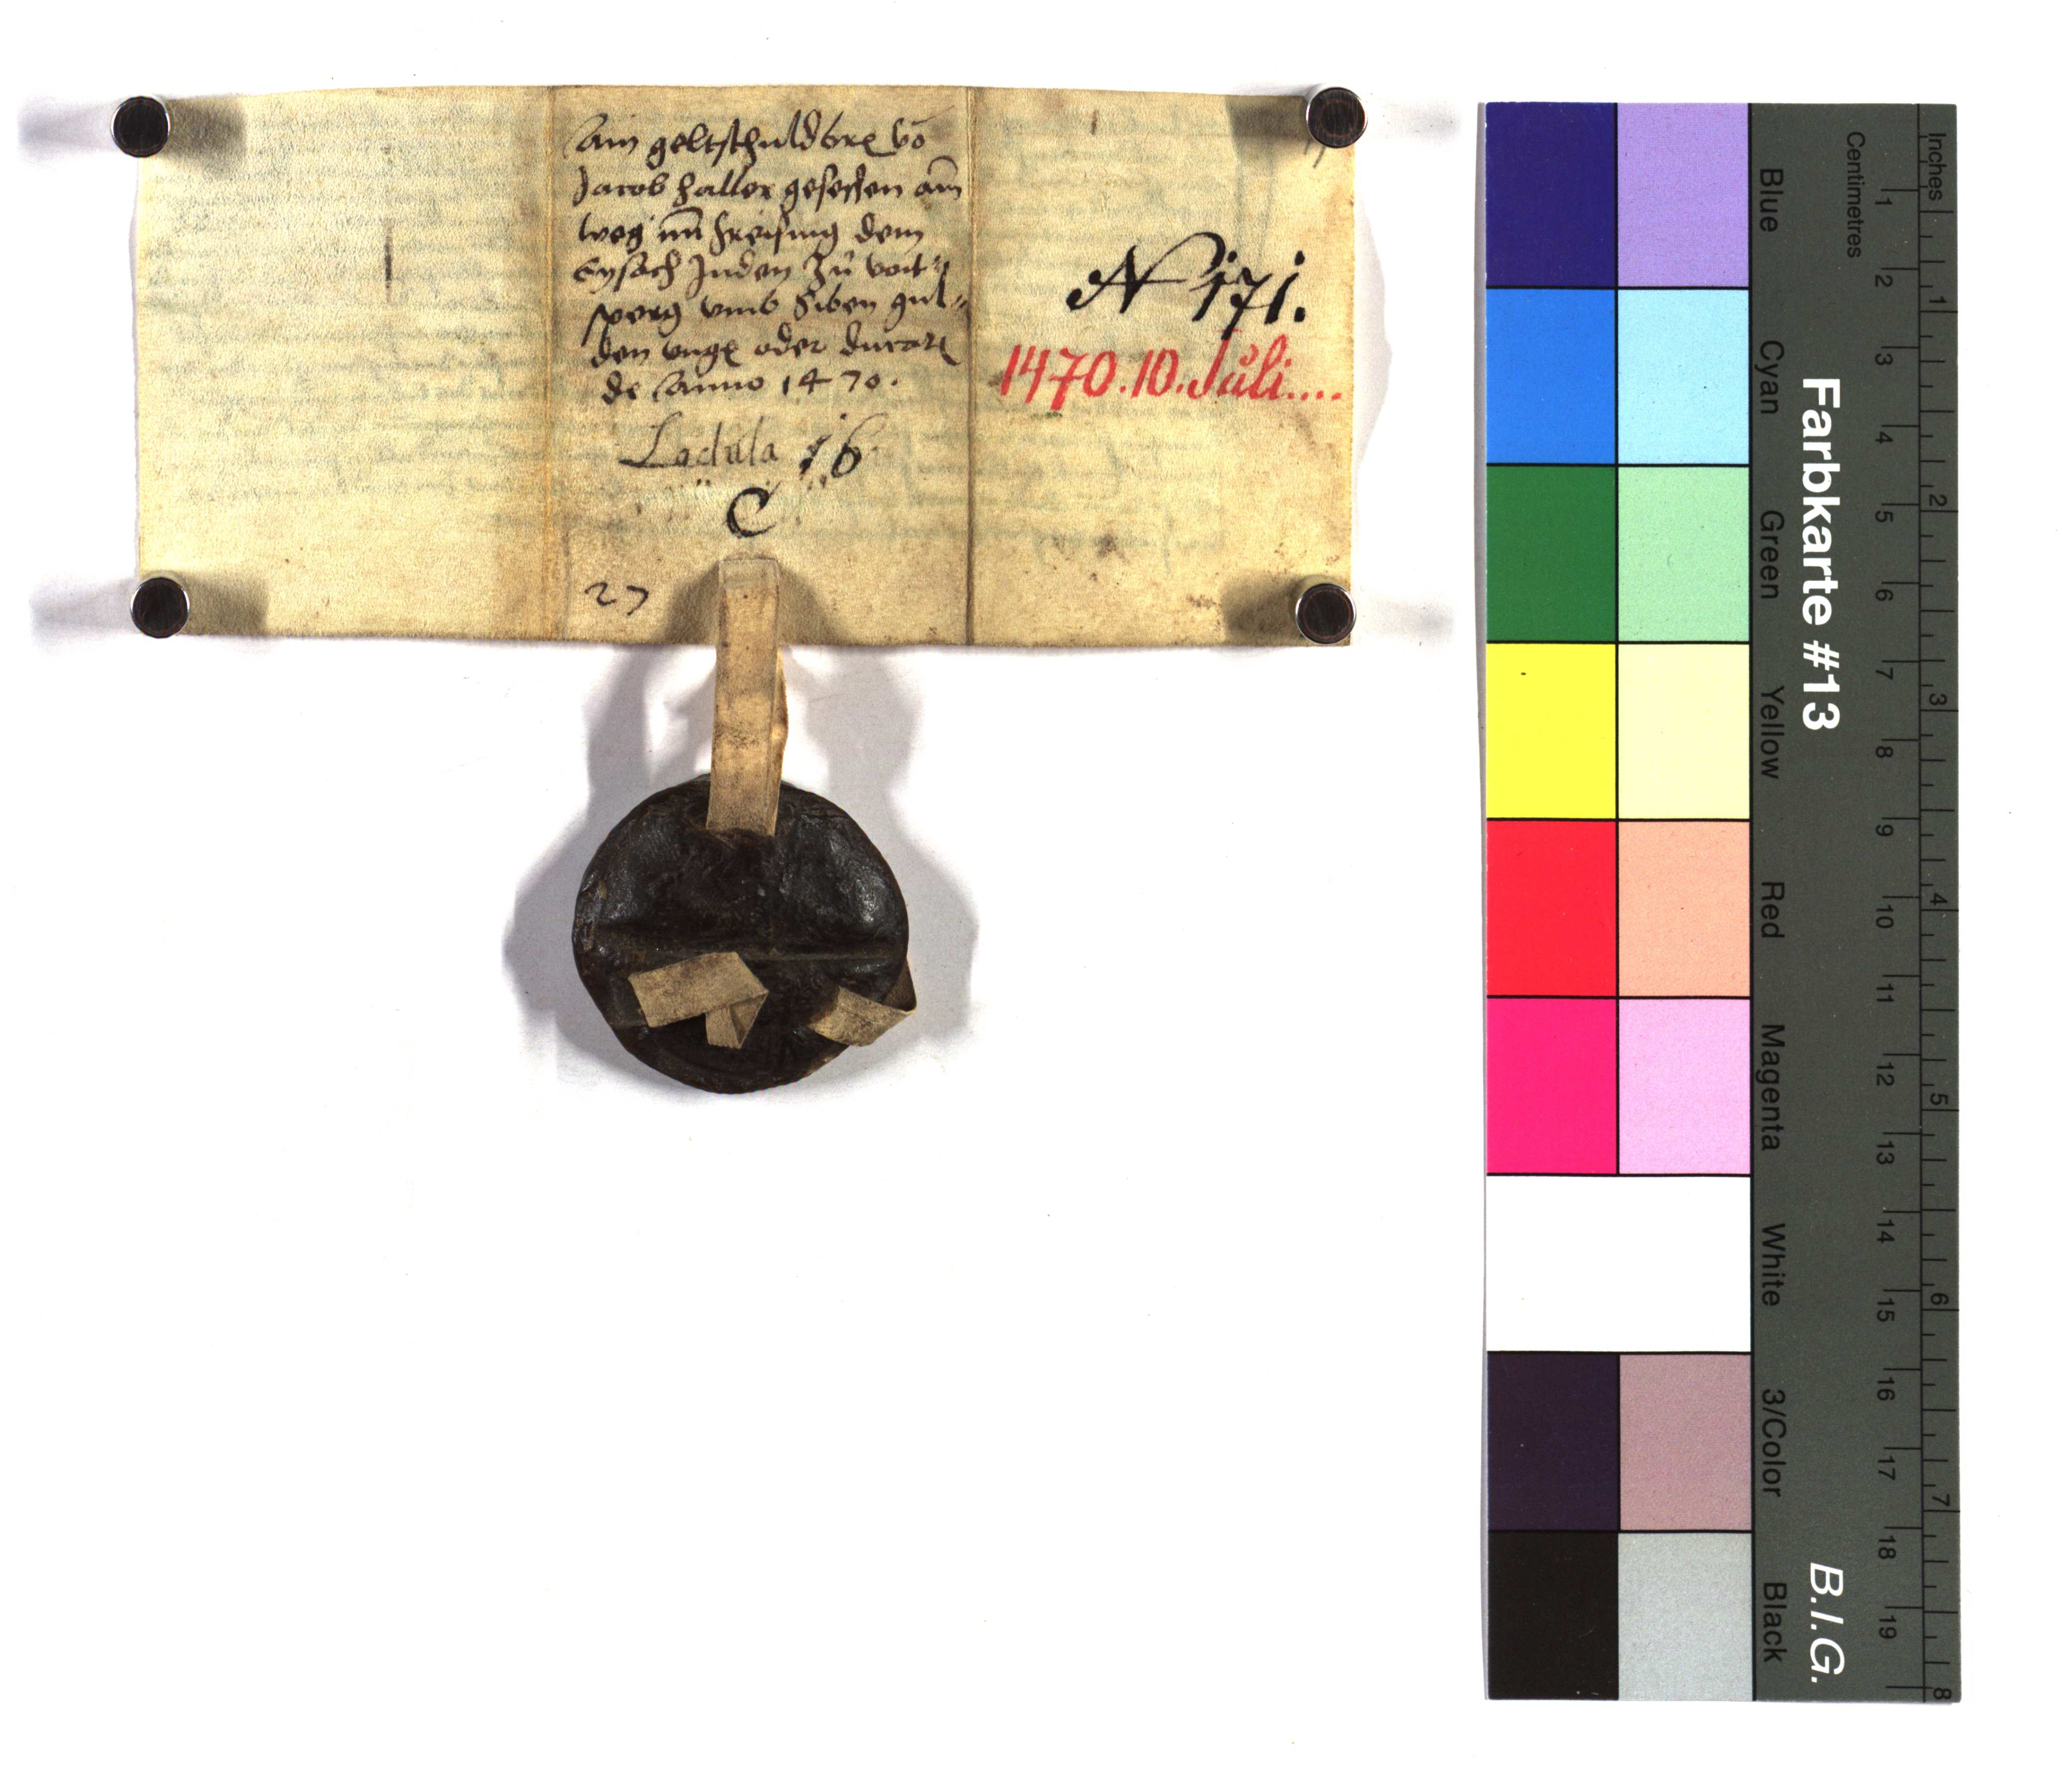 Ain geltschuldbrẽ võ
Jacob Haller gesessen am̃
weg nñ freising dem
Eysach Juden zů voit-
sperg vmb Siben gul-
den vngẽ oder ducatẽ
de Anno 1470.
Ladula 16
C
27
N 171.
1470.10.Juli....
Farbkarte #13
B.I.G.
Inches
Centimetres
Blue
Cyan
Green
Yellow
Red
Magenta
White
3/Color
Black
1 2 3 4 5 6 7 8 9 10 11 12 13 14 15 16 17 18 19
1 2 3 4 5 6 7 8